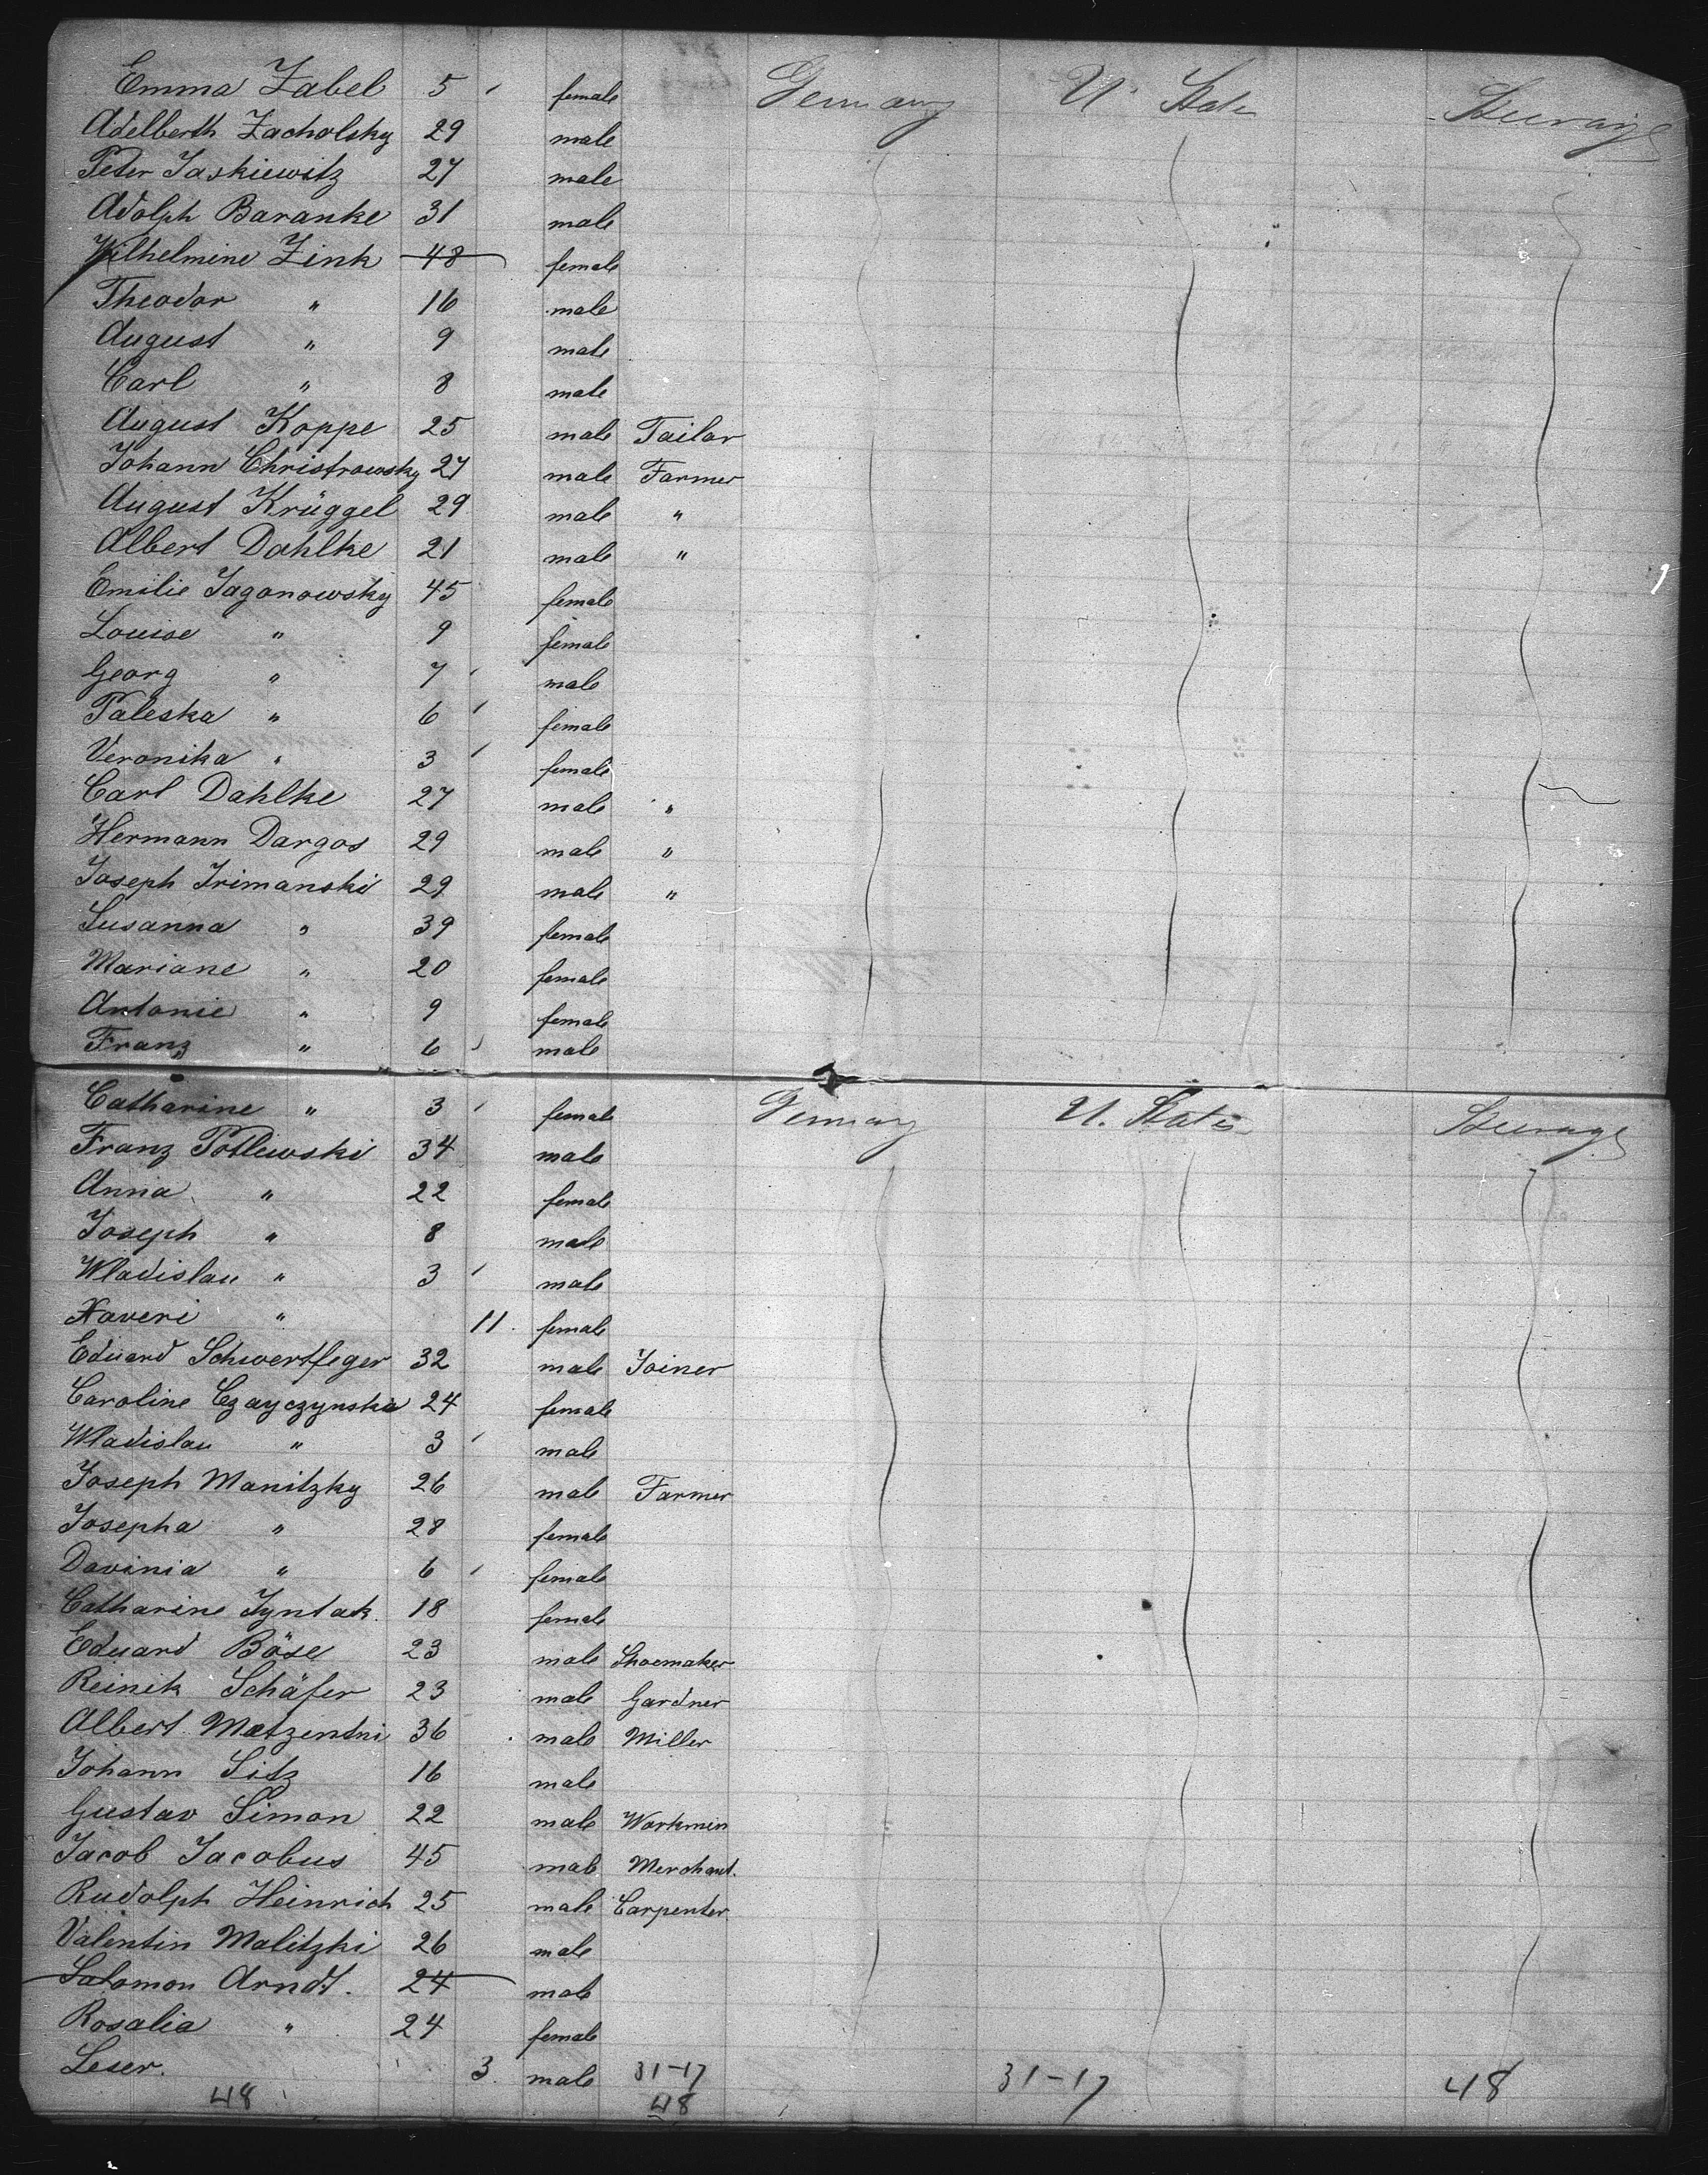 Emma Zabel 5 female Germany U. State Steerage
Adelberth Zacholsky 29 male
Peter Jaskiewitz 27 male
Adolph Baranke 31 male
Wilhelmine Zink 48 female
Theodor " 16 male
August " 9 male
Carl " 8 male
August Koppe 25 male Tailor
Johann Christrowsky 27 male Farmer
August Krüggel 29 male "
Albert Dahlke 21 male "
Emilie Jagonowsky 45 female
Louise " 9 female
Georg " 7 male
Paleska " 6 female
Veronika " 3 female
Carl Dahlke 27 male "
Hermann Dargos 29 male "
Joseph Irimanski 29 male "
Susanna " 39 female
Mariane " 20 female
Antonie " 9 female
Franz " 6 male
Catharine " 3 female Germany U. States Steerage
Franz Potlewski 34 male
Anna " 22 female
Joseph " 8 male
Wladislau " 3 male
Xaveri " 11. female
Eduard Schwertfeger 32 male Joiner
Caroline Czayczynska 24 female
Wladislau " 3 male
Joseph Manitzky 26 male Farmer
Josepha " 28 female
Davinia " 6 female
Catharine Jyntak. 18 female
Eduard Böse 23 male Shoemaker
Reinik Schäfer 23 male Gardner
Albert Matzentni 36 male Miller
Johann Sitz 16 male
Gustav Simon 22 male Workmen
Jacob Jacobus 45 male Merchant.
Rudolph Heinrich 25 male Carpenter
Valentin Malitzki 26 male
Salomon Arndt. 24 male
Rosalia " 24 female
Leser. 3. male 31-17 31-17 48
48 48